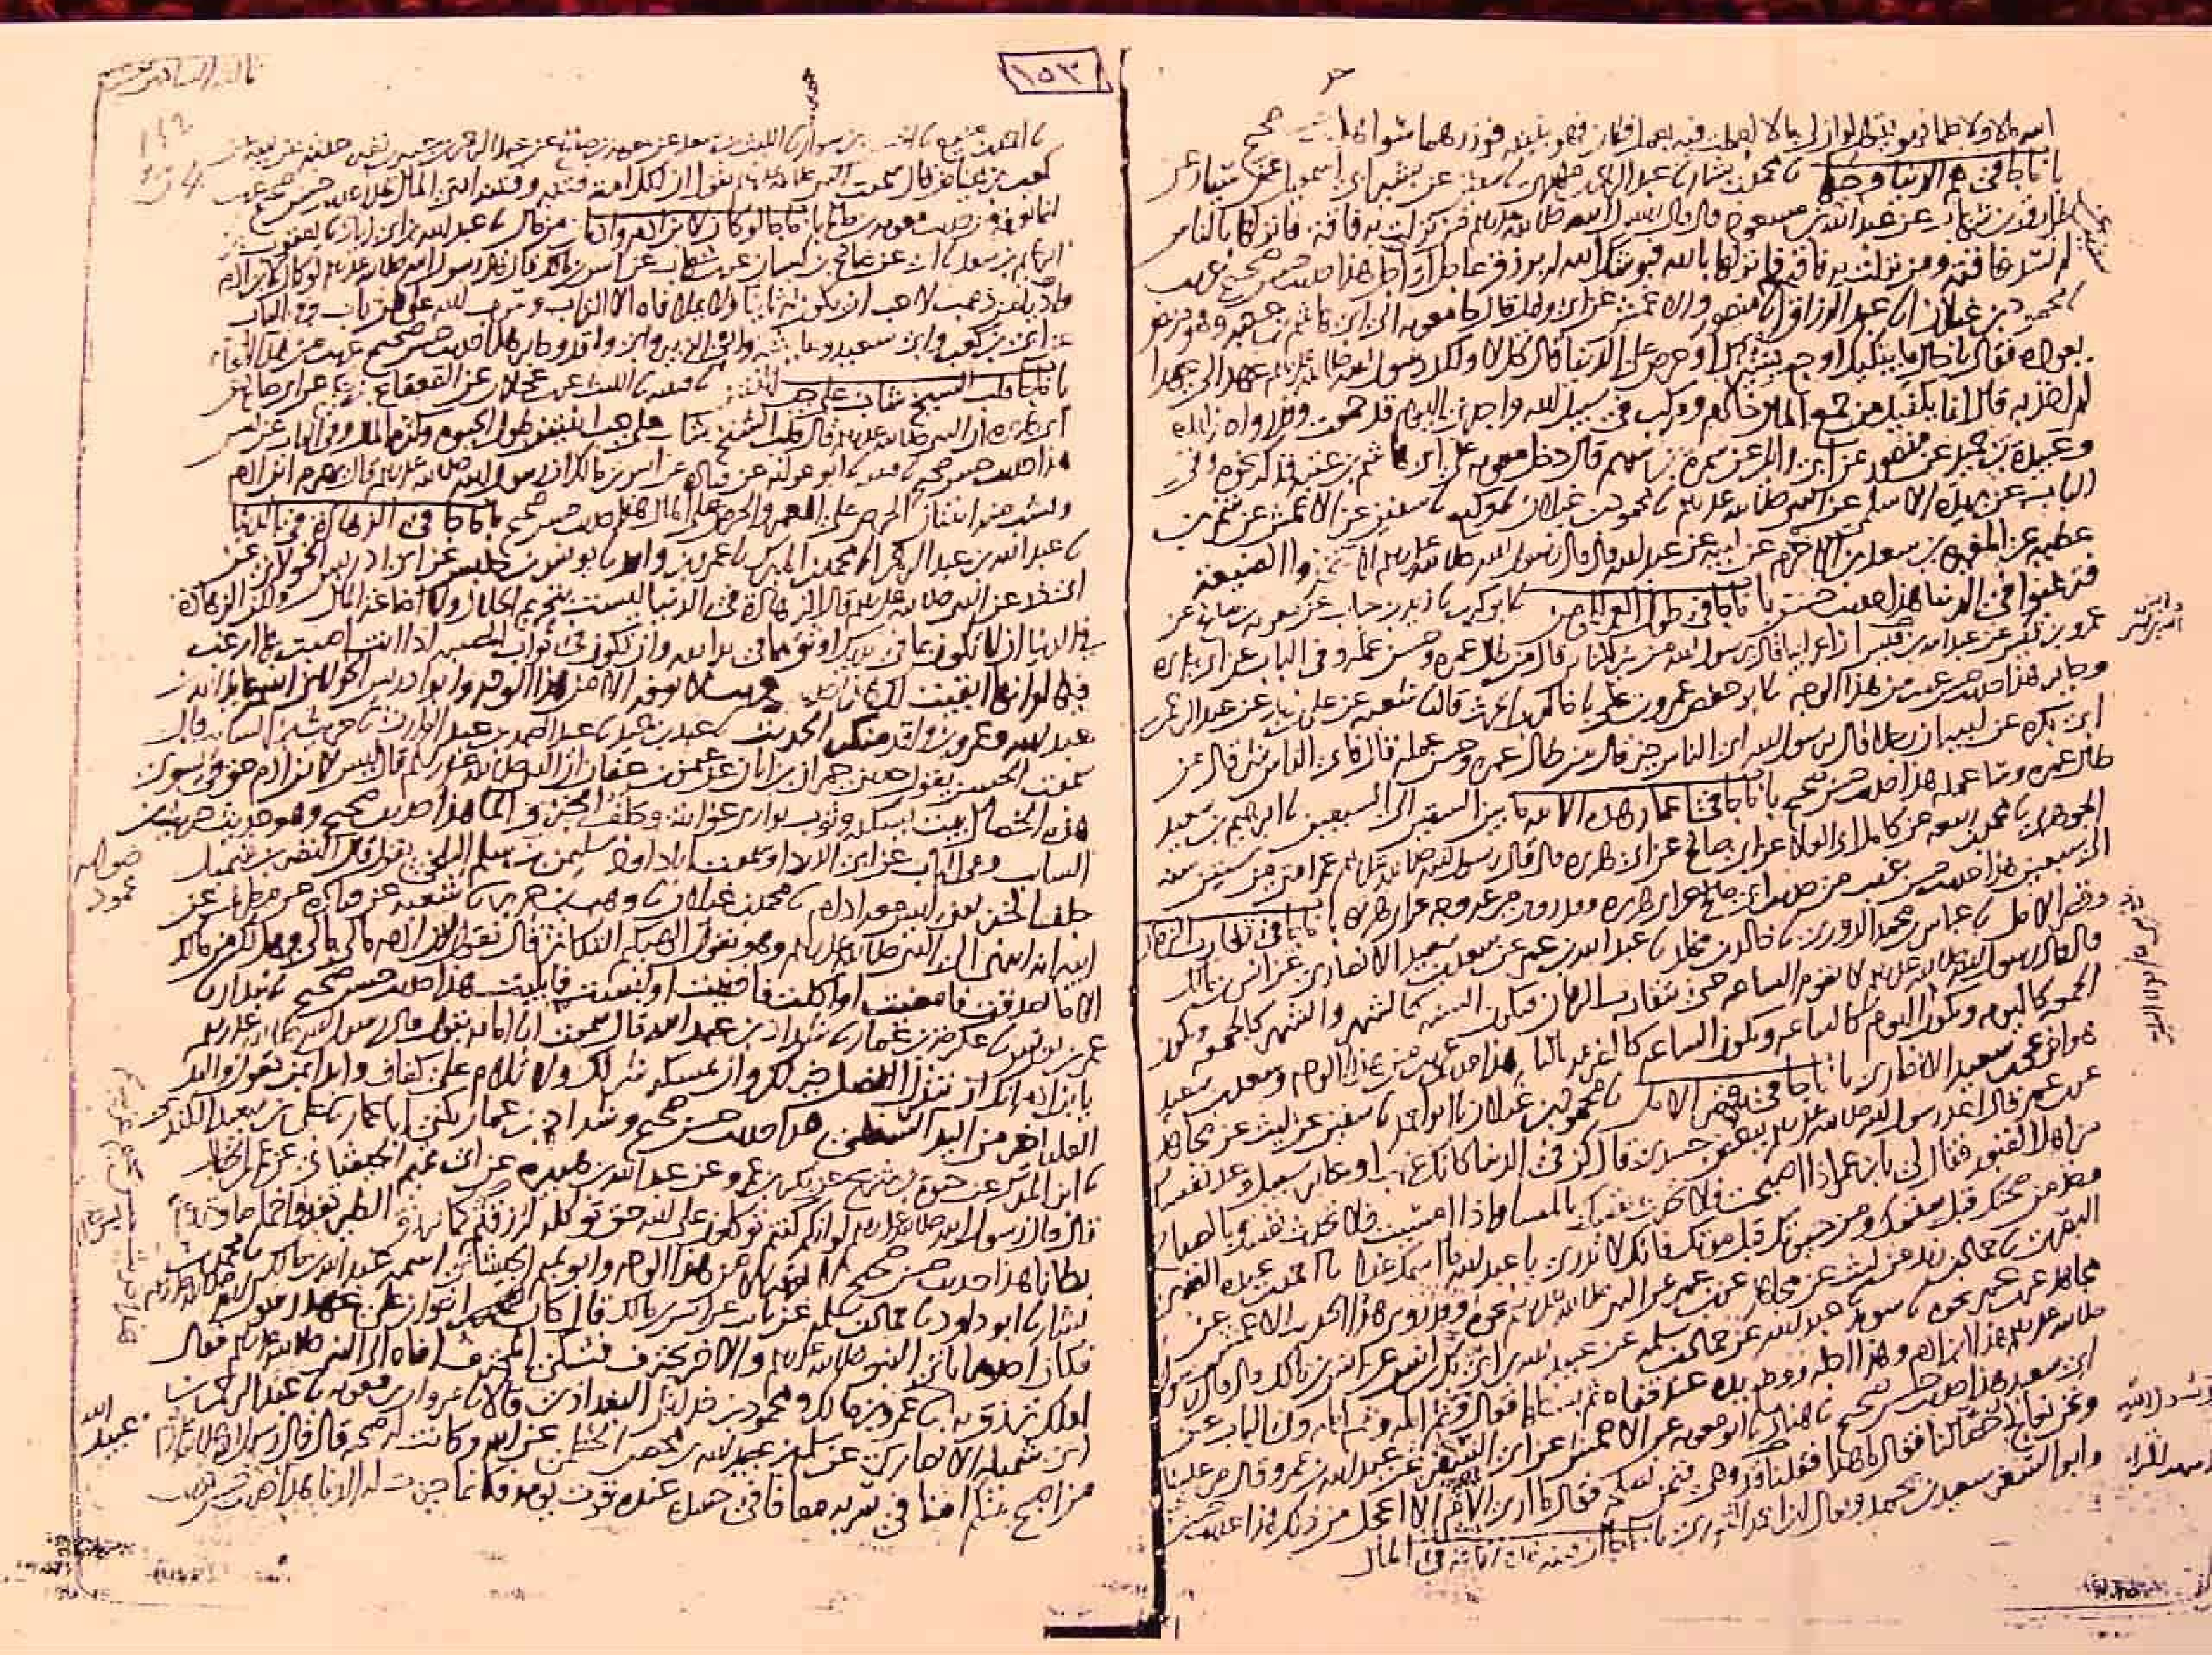 ١٥٣
الله مالا ولا علما فهو يقول لو ان لي مالا لعملت فيه بعمل فلان فهو بنيته فوزرهما سوا هذا حديث حسن صحيح
باب ما جا في هم الدنيا وحبها نا محمد بن بشار نا عبد الرحمن بن مهدي نا سفين عن بشير ابي اسمعيل عن سيار عن
طارق بن شهاب عن عبد الله بن مسعود قال قال رسول الله صلى الله عليه وسلم من نزلت به فاقة فانزلها بالناس
لم تسد فاقته ومن نزلت به فاقة فانزلها بالله فيوشك الله له برزق عاجل او اجل هذا حديث حسن صحيح غريب
نا محمود بن غيلان نا عبد الرزاق انا سفين عن منصور والاعمش عن ابي وايل قال جا معوية الى ابي هاشم بن عتبة وهو مريض
يعوده فقال يا خال ما يبكيك اوجع يشئزك او حرص على الدنيا قال كل لا ولكن رسول الله صلى الله عليه وسلم عهد الي عهدا
لم اخذ به قال انما يكفيك من جمع المال خادم ومركب في سبيل الله واجدني اليوم قد جمعت وقد رواه زايدة
وعبيدة بن حميد عن منصور عن ابي وايل عن سمرة بن سهم قال دخل معوية على ابي هاشم بن عتبة فذكر نحوه وفي
الباب عن بريدة الاسلمي عن النبي صلى الله عليه وسلم نا محمود بن غيلان نا وكيع نا سفين عن الاعمش عن شمر بن
عطية عن المغيرة بن سعد بن الاخرم عن ابيه عن عبد الله قال قال رسول الله صلى الله عليه وسلم لا تتخذوا الضيعة
فترغبوا في الدنيا هذا حديث حسن باب ما جا في طول العمر للمومن نا ابو كريب نا زيد بن حباب عن معوية بن صالح عن
عمرو بن قيس عن عبد الله بن قيس ان اعرابيا قال يرسول الله من خير الناس قال من طال عمره وحسن عمله وفي الباب عن ابي هريرة
وجابر هذا حديث حسن غريب من هذا الوجه نا ابو حفص عمرو بن علي نا خالد بن الحرث نا شعبة عن علي بن زيد عن عبد الرحمن بن
ابي بكرة عن ابيه ان رجلا قال يرسول الله اي الناس خير قال من طال عمره وحسن عمله قال فاي الناس شر قال من
طال عمره وسا عمله هذا حديث حسن صحيح باب ما جا في اعمار هذه الامة ما بين الستين الى السبعين نا ابرهيم بن سعيد
الجوهري نا محمد بن ربيعة عن كامل ابي العلا عن ابي صالح عن ابي هريرة قال قال رسول الله صلى الله عليه وسلم عمر امتي من ستين سنة
الى سبعين هذا حديث حسن غريب من حديث ابي صالح عن ابي هريرة وقد روي من غير وجه عن ابي هريرة باب ما جا في تقارب الزمان
وقصر الامل نا عباس بن محمد الدوري نا خالد بن مخلد نا عبد الله بن عمر عن سعد بن سعيد الانصاري عن انس بن مالك
قال قال رسول الله صلى الله عليه وسلم لا تقوم الساعة حتى يتقارب الزمان فتكون السنة كالشهر والشهر كالجمعة وتكون
الجمعة كاليوم ويكون اليوم كالساعة وتكون الساعة كالضرمة بالنار هذا حديث غريب من هذا الوجه وسعد بن سعيد
هو اخو يحيى بن سعيد الانصاري باب ما جا في قصر الامل نا محمود بن غيلان نا ابو احمد نا سفين عن ليث عن مجاهد
عن ابن عمر قال اخذ رسول الله صلى الله عليه وسلم ببعض جسدي قال كن في الدنيا كانك غريب او عابر سبيل وعد نفسك
من اهل القبور فقال لي يا بن عمر اذا اصبحت فلا تحدث نفسك بالمسا واذا امسيت فلا تحدث نفسك بالصباح
وخذ من صحتك قبل سقمك ومن حيوتك قبل موتك فانك لا تدري يا عبد الله ما اسمك غدا نا احمد بن عبدة الضبي
البصري نا حماد بن زيد عن ليث عن مجاهد عن ابن عمر عن النبي صلى الله عليه وسلم نحوه وقد روى هذا الحديث الاعمش عن
مجاهد عن ابن عمر نحوه نا سويد نا عبد الله عن حماد بن سلمة عن عبيد الله بن ابي بكر بن انس عن انس بن مالك قال قال رسول
صلى الله عليه وسلم هذا ابن ادم وهذا اجله ووضع يده عند قفاه ثم بسطها فقال وثم امله وثم امله وفي الباب عن
ابي سعيد هذا حديث حسن صحيح نا هناد نا ابو معوية عن الاعمش عن ابي السفر عن عبد الله بن عمرو قال مر علينا
ونحن نعالج خصا لنا فقال ما هذا فقلنا قد وهى فنحن نصلحه فقال ما ارى الامر الا اعجل من ذلك هذا حديث حسن
وابو السفر سعيد بن محمد ويقال ابن احمد الثوري باب ما جا ان فتنة هذه الامة في المال
نا احمد بن منيع نا الحسن بن سوار نا الليث بن سعد عن معوية بن صلح عن عبد الرحمن بن جبير بن نفير حدثه عن ابيه عن
كعب بن عياض قال سمعت النبي صلى الله عليه وسلم يقول ان لكل امة فتنة وفتنة امتي المال هذا حديث حسن صحيح غريب
انما نعرفه من حديث معوية بن صالح باب ما جا لو كان لابن ادم واديان من مال نا عبد الله بن ابي زياد نا يعقوب بن
ابرهيم بن سعد نا ابي عن صالح بن كيسان عن ابن شهاب عن انس بن مالك قال قال رسول الله صلى الله عليه وسلم لو كان لابن ادم
واديا من ذهب لاحب ان يكون له ثانيا ولا يملا فاه الا التراب ويتوب الله على من تاب وفي الباب
عن ابي بن كعب وابي سعيد وعايشة وابن الزبير وابي واقد وجابر هذا حديث حسن صحيح غريب من هذا الوجه
باب ما جا قلب الشيخ شاب على حب اثنتين نا قتيبة نا الليث عن ابن عجلان عن القعقاع بن حكيم عن ابي صالح عن
ابي هريرة ان النبي صلى الله عليه وسلم قال قلب الشيخ شاب على حب اثنتين طول الحيوة وكثرة المال وفي الباب عن انس
هذا حديث حسن صحيح نا قتيبة نا ابو عوانة عن قتادة عن انس بن مالك ان رسول الله صلى الله عليه وسلم قال يهرم ابن ادم
ويشب منه اثنتان الحرص على العمر والحرص على المال هذا حديث حسن صحيح باب ما جا في الزهادة في الدنيا
نا عبد الله بن عبد الرحمن انا محمد بن المبرك نا عمرو بن واقد نا يونس بن حلبس عن ابي ادريس الخولاني عن
ابي ذر عن النبي صلى الله عليه وسلم قال الزهادة في الدنيا ليست بتحريم الحلال ولا اضاعة المال ولكن الزهادة
في الدنيا ان لا تكون بما في يديك اوثق مما في يد الله وان تكون في ثواب المصيبة اذا انت اصبت بها ارغب
فيها لو انها ابقيت لك هذا حديث غريب لا نعرفه الا من هذا الوجه وابو ادريس الخولاني اسمه عايذ الله بن
عبد الله وعمرو بن واقد منكر الحديث نا عبد بن حميد نا عبد الصمد بن عبد الوارث نا حريث بن السايب قال
سمعت الحسن يقول حدثني حمران بن ابان عن عثمن بن عفان ان النبي صلى الله عليه وسلم قال ليس لابن ادم حق في سوى
هذه الخصال بيت يسكنه وثوب يواري عورته وجلف الخبز والما هذا حديث صحيح وهو حديث حريث بن
السايب وسمعت ابا داود سليمن بن سلم البلخي يقول قال النضر بن شميل
جلف الخبز يعني ليس معه ادام نا محمود بن غيلان نا وهب بن جرير نا شعبة عن قتادة عن مطرف عن
ابيه انه انتهى الى النبي صلى الله عليه وسلم وهو يقول الهيكم التكاثر قال يقول ابن ادم مالي مالي وهل لك من مالك
الا ما تصدقت فامضيت او اكلت فافنيت او لبست فابليت هذا حديث حسن صحيح نا بندار نا
عمر بن يونس نا عكرمة بن عمار نا شداد بن عبد الله قال سمعت ابا امامة يقول قال رسول الله صلى الله عليه وسلم
يا بن ادم انك ان تبذل الفضل خير لك وان تمسكه شر لك ولا تلام على كفاف وابدا بمن تعول واليد
العليا خير من اليد السفلى هذا حديث حسن صحيح وشداد بن عبد الله يكنى ابا عمار نا علي بن سعيد الكندي
نا ابن المبرك عن حيوة بن شريح عن بكر بن عمرو عن عبد الله بن هبيرة عن ابي تميم الجيشاني عن عمر بن الخطاب
قال قال رسول الله صلى الله عليه وسلم لو انكم كنتم توكلون على الله حق توكله لرزقتم كما ترزق الطير تغدوا خماصا وتروح
بطانا هذا حديث حسن صحيح لا نعرفه الا من هذا الوجه وابو تميم الجيشاني اسمه عبد الله بن مالك نا محمد بن
بشار نا ابو داود نا حماد بن سلمة عن ثابت عن انس بن مالك قال كان اخوان على عهد رسول الله صلى الله عليه وسلم
فكان احدهما ياتي النبي صلى الله عليه وسلم والاخر يحترف فشكى المحترف اخاه الى النبي صلى الله عليه وسلم فقال
لعلك ترزق به نا عمرو بن مالك ومحمود بن خداش البغدادي قالا نا مروان بن معوية نا عبد الرحمن بن
ابي شميلة الانصاري عن سلمة بن عبيد الله بن محصن الخطمي عن ابيه وكانت له صحبة قال قال رسول الله صلى الله عليه وسلم
من اصبح منكم امنا في سربه معافا في جسده عنده قوت يومه فكانما حيزت له الدنيا هذا حديث حسن غريب